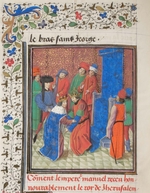 le bras saint george
Comment lempereˀ manuel receu hon
nourablement le roy de iherusalem